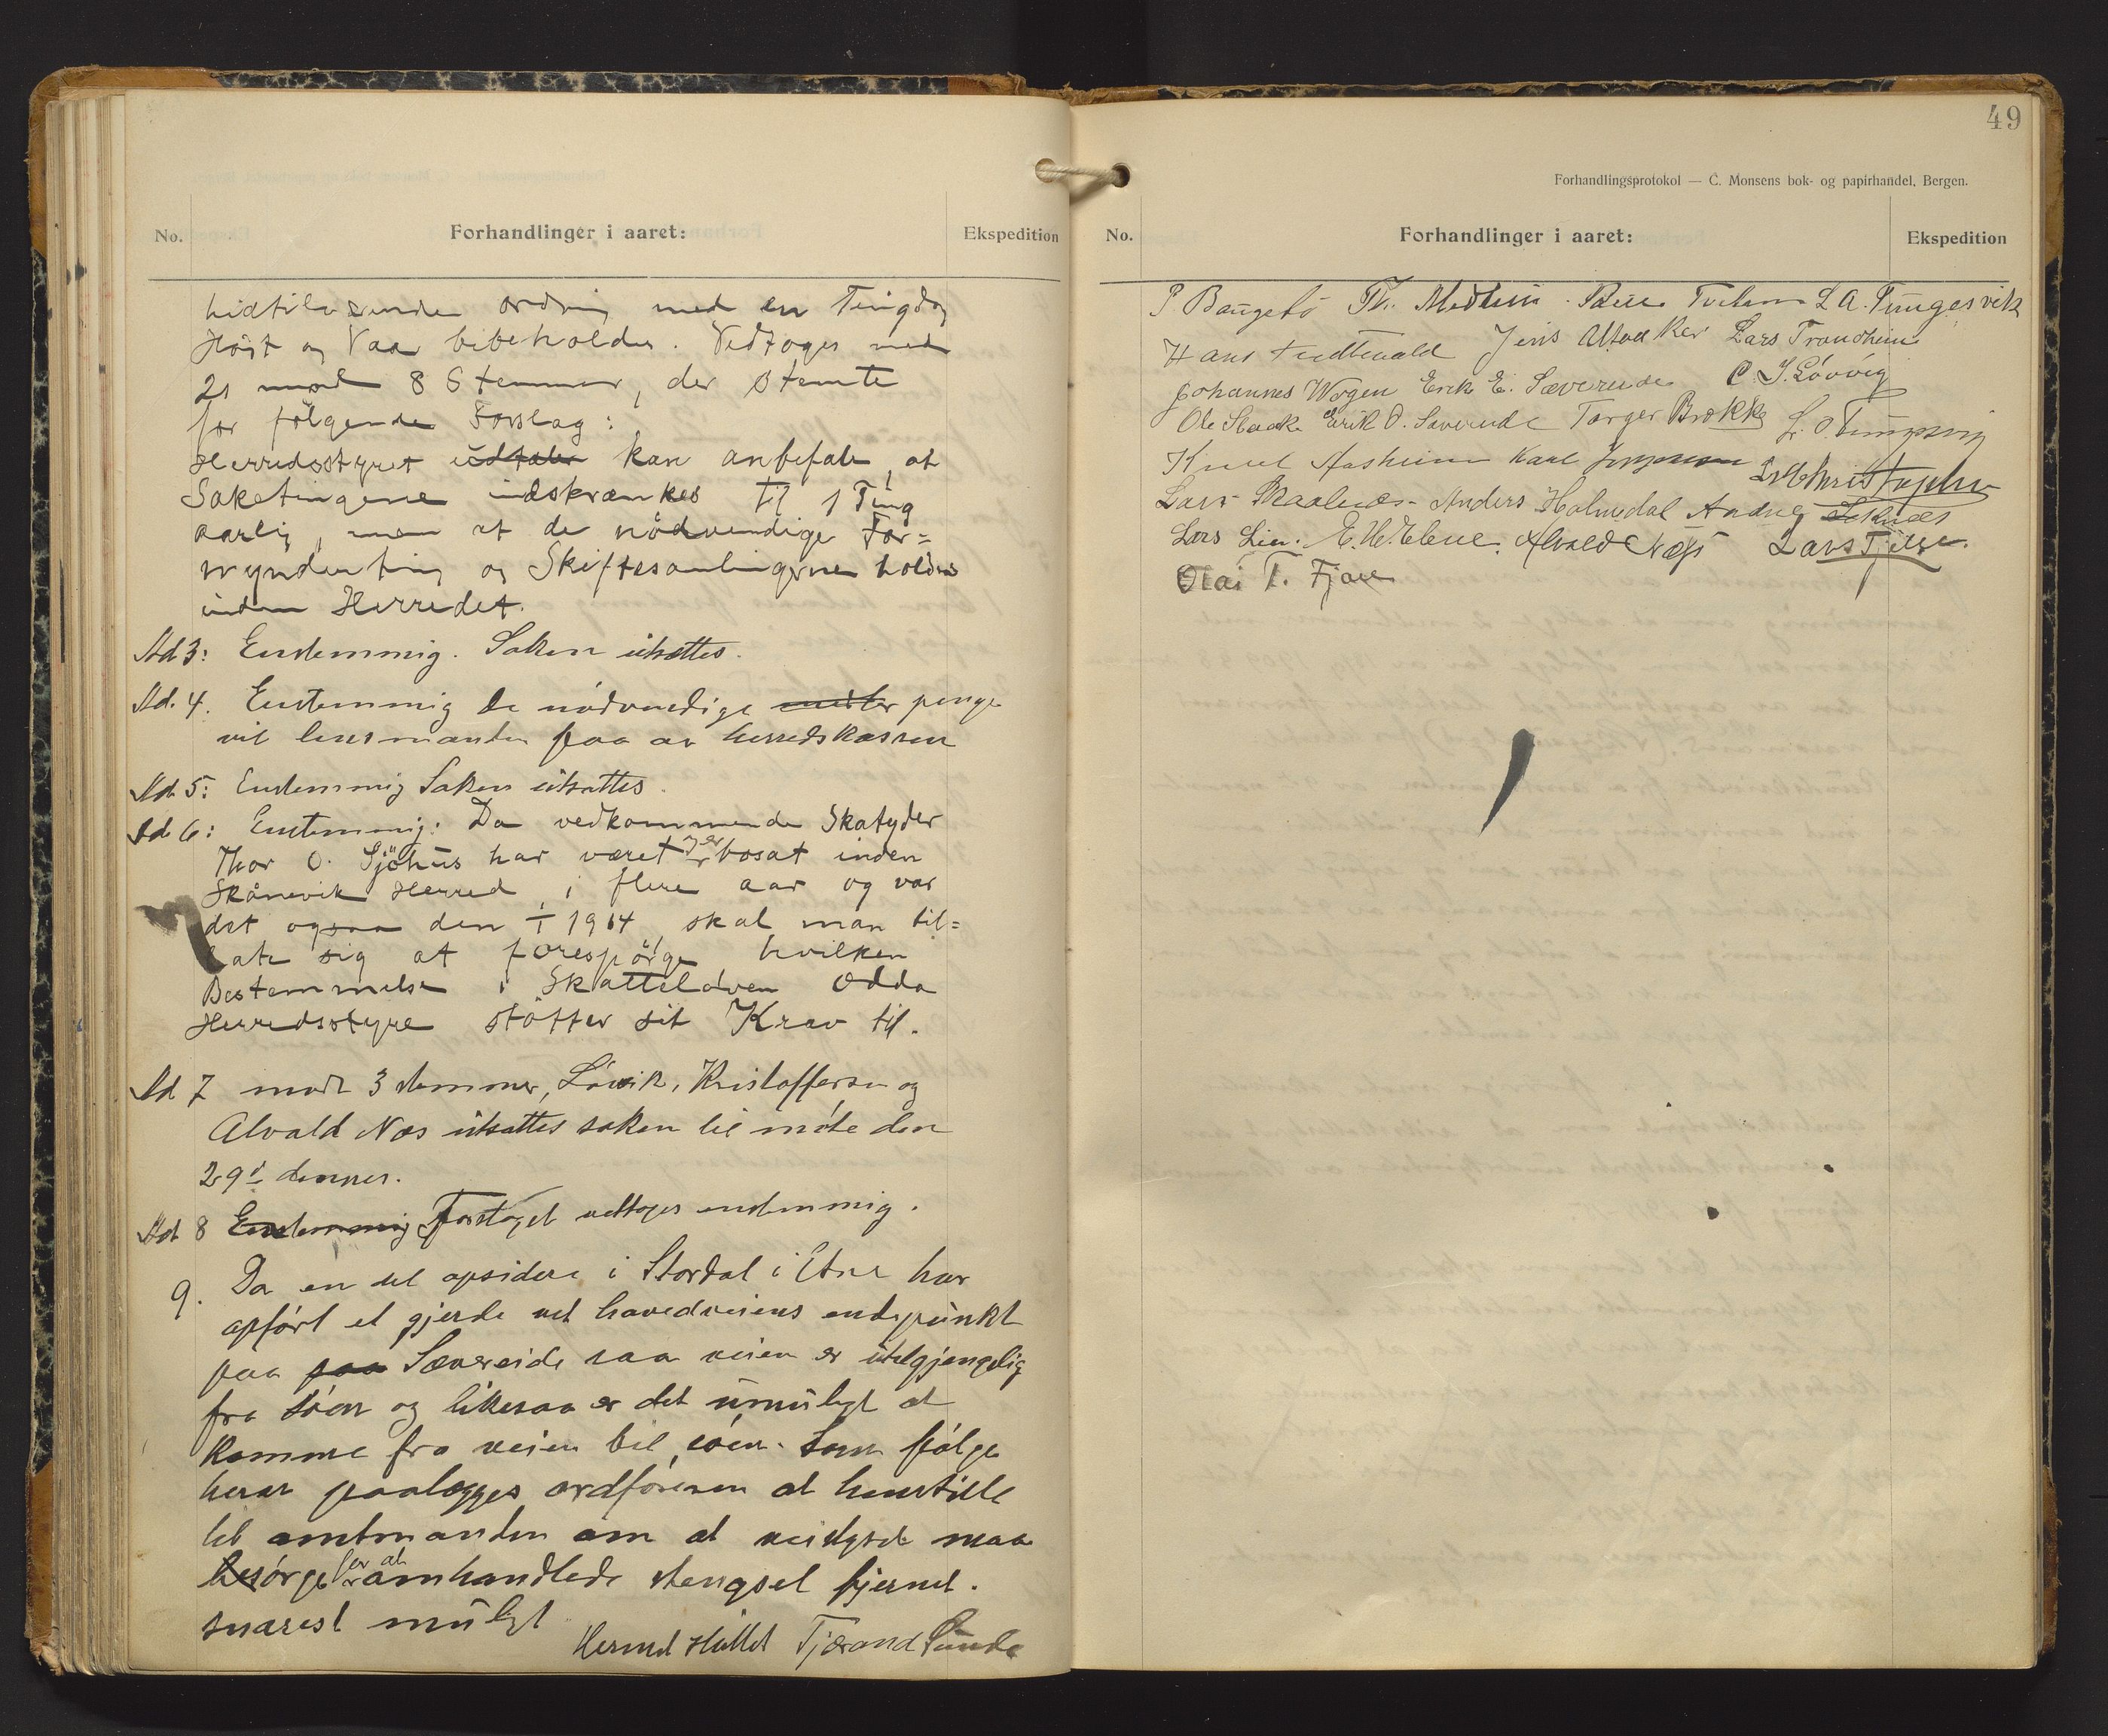 No.
Forhandlinger i aaret:
Ekspedition
hidtilværende ordning med en Tingdag
Høst og Vaar bibeholdes. Vedtoges med
21 mod 8 Stemmer, der stemte
for følgende Forslag:
Herredsstyret udtaler kan anbefale, at
Saketingene indskrænkes til 1 Ting
aarlig, men at de nødvendige For=
mynderting og Skiftesamlingerne holdes
inden Herredet.
Ad 3: Enstemmig. Saken utsættes.
Ad. 4. Enstemmig de nødvendige midler penge
vil lensmanden faa av herredskassen
Ad 5: Enstemmig Saken utsættes.
Ad 6: Enstemmig: Da vedkommende Skatyder
Thor O. Sjöhus har været og er bosat inden
Skånevik Herred i flere aar og var
det ogsaa den 1/1 1914 skal man til=
late sig at forespørge hvilken
Bestemmelse i Skatteloven Odda
Herredsstyre støtter sit Krav til.
Ad 7 mod 3 stemmer, Løvik, Kristoffersen og
Alvald Næs utsættes saken til møte den
29d dennes.
Ad 8 Enstemmig Forslaget vedtages enstemmig.
9. Da en del opsidere i Stordal i Etne har
opført et gjerde ved hovedveiens endepunkt
paa paa Sævereide saa veien er utilgjengelig
fra søen og likesaa er det umuligt at
komme fra veien til søen. Som følge
herav paalægges ordføreren at henstille
til amtmanden om at veistyret maa
besørge for at omhandlede stengsel fjernet.
snarest muligt
Hermed sluttet Tjærand Sunde
49
Forhandlingsprotokol — C. Monsens bok- og papirhandel, Bergen.
No.
Forhandlinger i aaret:
Ekspedition
P Baugstø Th. Medhus L A. Tungesvik
Hans Jens Lars Trondheim
Johannes Wogen Erik E. Sævereide C. J. Løvvig
Ole Staake Erik O. Sævereide Torger Brekke L. O. Tungesvig
Knut Aasheim Karl
Lars Skaalnes Anders Holmedal Andreas
Lars Lin. Alvald Næs Lars Fjære.
Olai T. Fjære